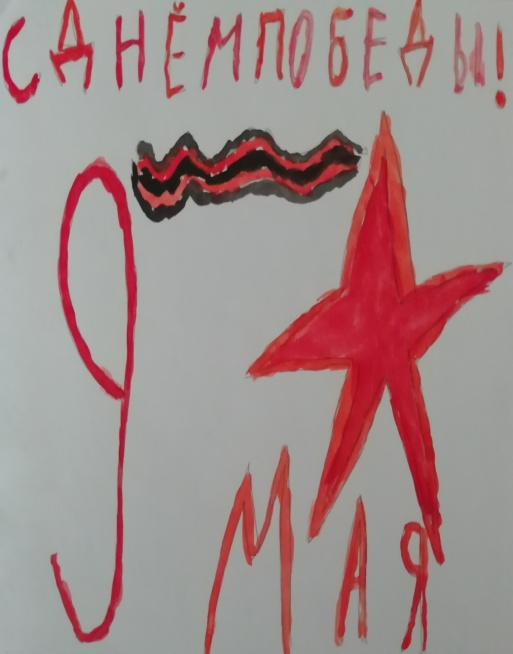 С ДНЁМ ПОБЕДЫ!
9
МАЯ